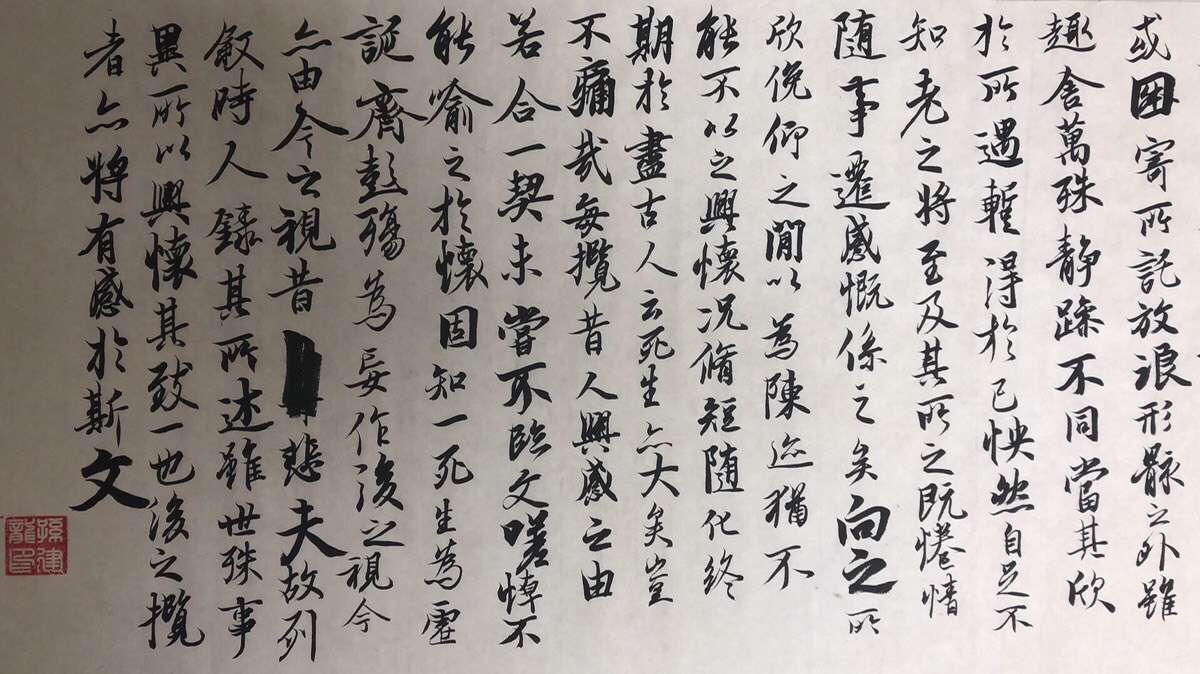 或因寄所託放浪形骸之外雖
趣舍萬殊静躁不同當其欣
於所遇蹔得於己怏然自足不
知老之將至及其所之既惓情
随事遷感慨係之矣向之所
欣俛仰之閒以為陳迹猶不
能不以之興懷况脩短随化終
期於盡古人云死生亦大矣豈
不痛哉每攬昔人興感之由
若合一契未嘗不臨文嗟悼不
能喻之於懷固知一死生為虛
誕齊彭殤為妄作後之視今
亦由今之視昔悲夫故列
敘時人錄其所述雖世殊事
異所以興懷其致一也後之攬
者亦將有感於斯文
孫建龍印